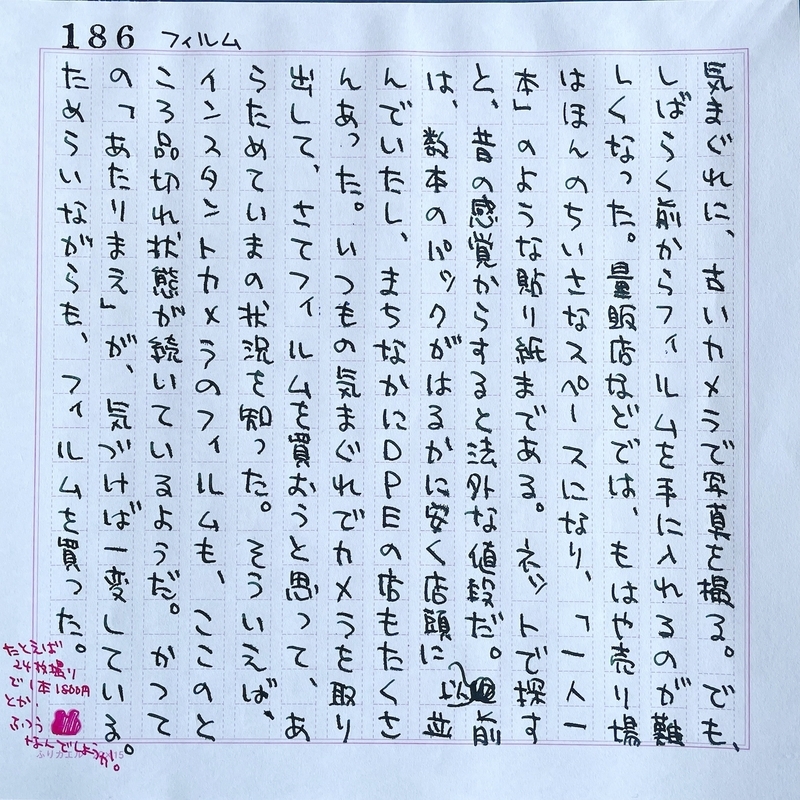 186 フィルム
気まぐれに、古いカメラで写真を撮る。でも、
しばらく前からフィルムを手に入れるのが難
しくなった。量販店などでは、もはや売り場
はほんのちいさなスペースになり、「一人一
本」のような貼り紙まである。ネットで探す
と、昔の感覚からすると法外な値段だ。前
は、数本のパックがはるかに安く店頭に並
んでいたし、まちなかにDPEの店もたくさ
んあった。いつもの気まぐれでカメラを取り
出して、さてフィルムを買おうと思って、あ
らためていまの状況を知った。そういえば、
インスタントカメラのフィルムも、ここのと
ころ品切れ状態が続いているようだ。かつて
の「あたりまえ」が、気づけば一変している。
ためらいながらも、フィルムを買った。
たとえば
24枚撮り
で1本1800円
とか、
ふつう
なんでしょうか。